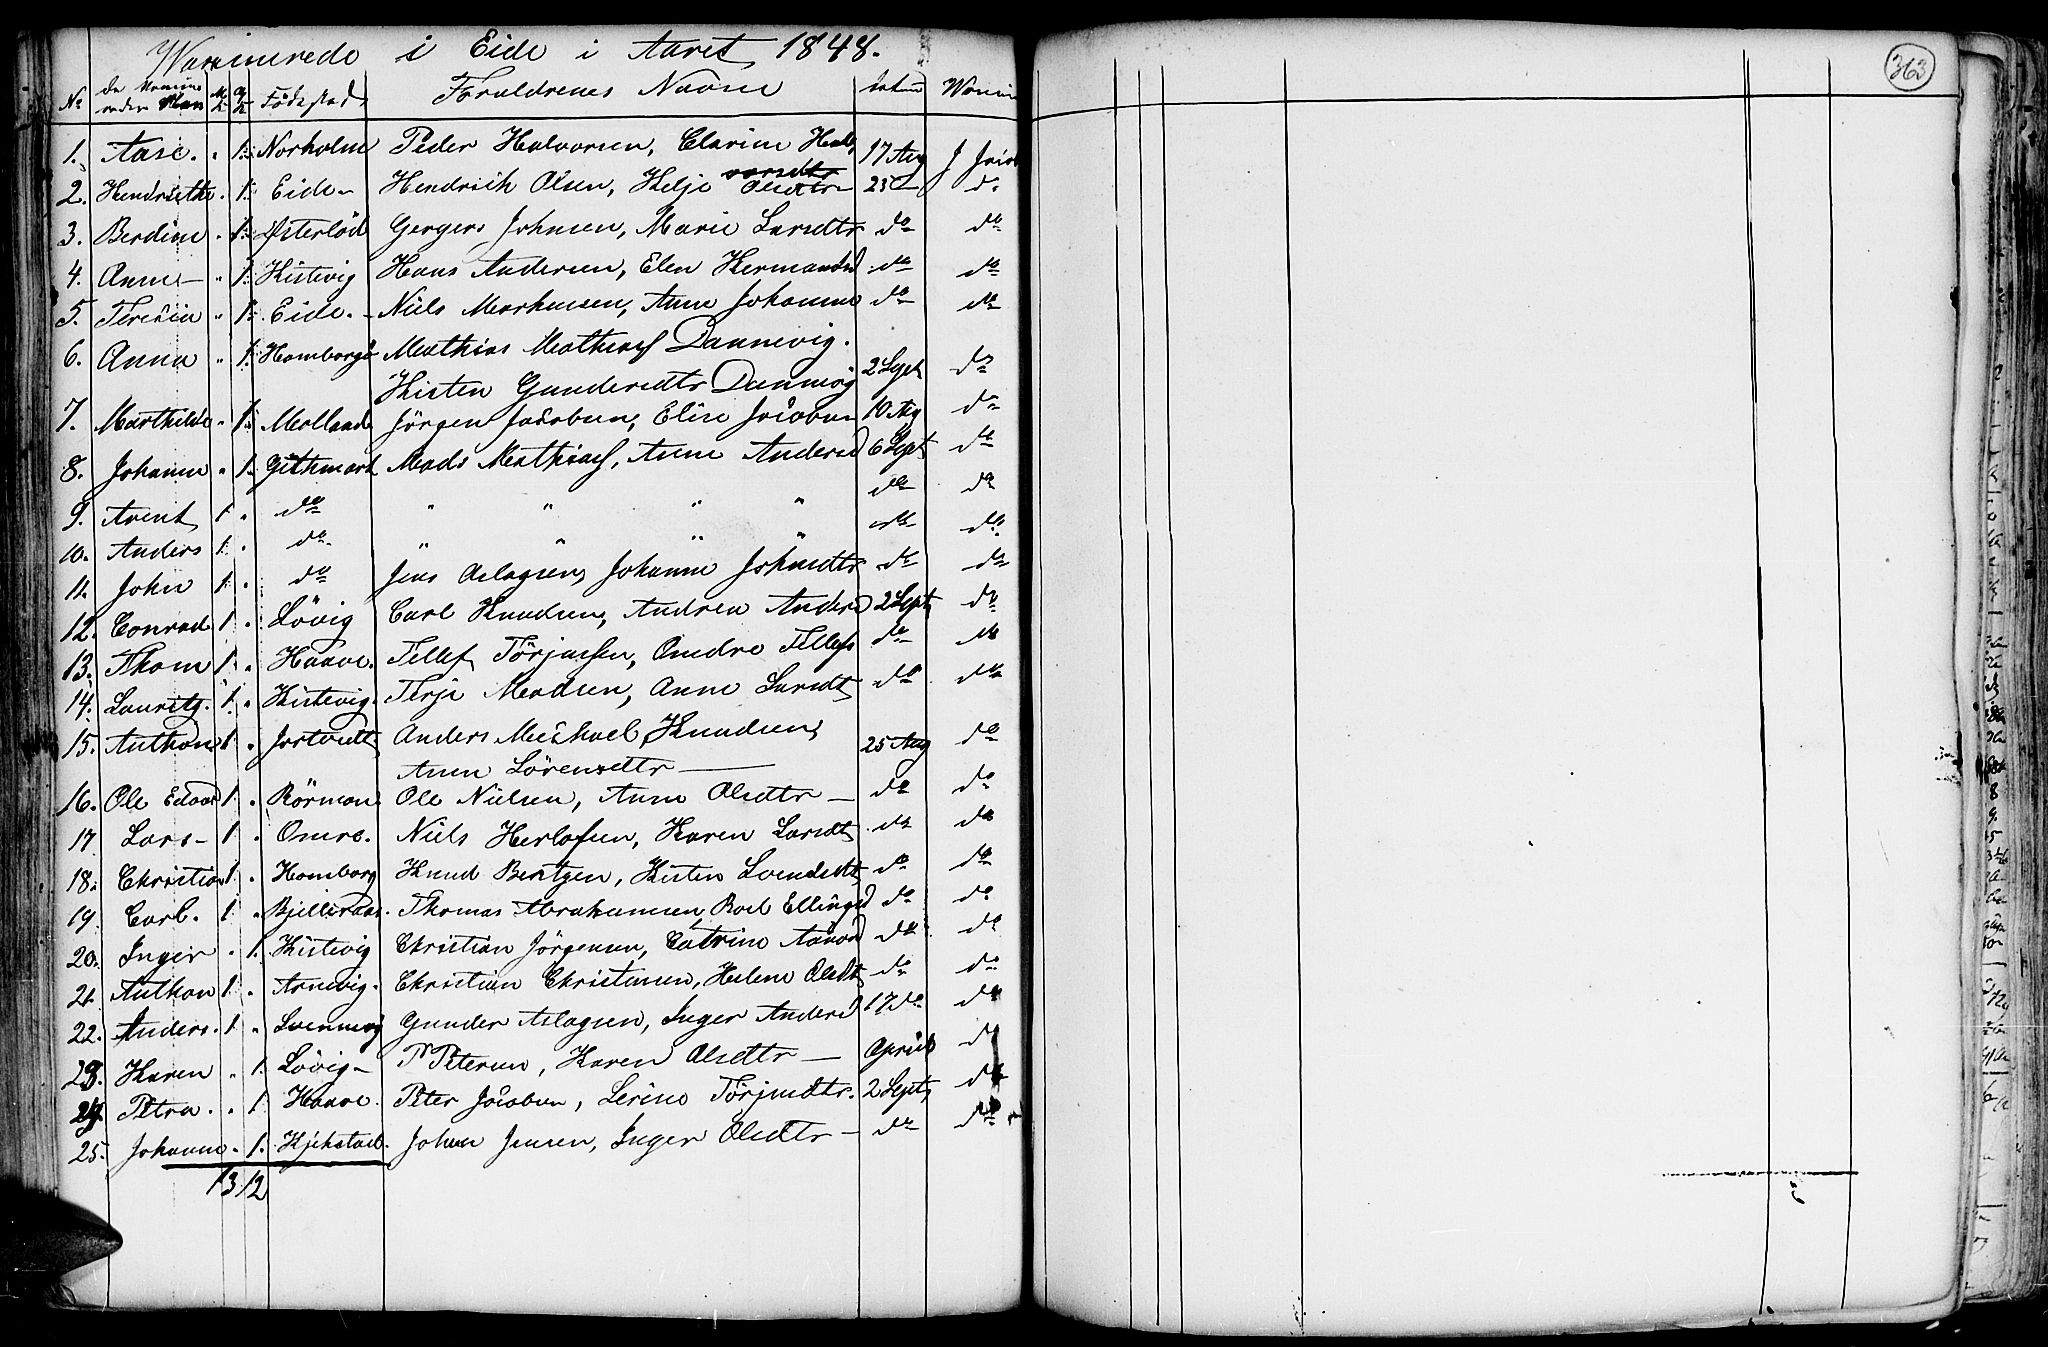 Waxinerede i Eide i Aaret 1848.
363
No de Vaxine reder Navn M K Q K Födestad Foraldrenes Navne Datum Vaxin
1. Aase. " 1. Norholm Peder Halvorsen, Clarine Hal 17 Aug J
vorsdtr
2. Hendrikthe " 1. Eide - Hendrich Olsen, Helje Olsdtr 23 - do
3. Berdine " 1. Østerlöd Gergers Johnsen, Marie Larsdtr do do
4. Anne - " 1. Kistevig Hans Andersen, Elen Hermansd do do
5. Teresia " 1. Eide. - Niels Markusen, Anne Johanne do do
6. Anna " 1. Homborgö Mathias Mathias Dannevig.
Kisten Gundersdtr Dannevig 2 Sept do
7. Marthilde " 1. Molland Jörgen Jacobsen, Elise Jacobsen 10 Aug do
8. Johanne " 1. Githmark Mads Mathias, Anne Andersd 6 Sept do
9. Arent 1 " do " " " " do do
10. Anders 1. " do " " " " do do
11. John 1. " do Jens Aslagsen, Johanne Johnsdtr do do
12. Conrad 1. " Lövig Carl Knudsen, Andrea Andersd 2 Sept do
13. Thom 1. " Haave. Tellef Törjussen, Andre Tellefs do do
14. Lauritz. 1. " Kistevig. Terje Madsen, Anne Larsdt do do
15. Anthon 1. " Jortvedt Anders Michael Knudsen,
Anen Lörensdtr - 25 Aug do
16. Ole Edvar 1. " Rörmon Ole Nielsen, Anne Olsdtr - do do
17 Lars - 1. " Omre. Niels Herlofsen, Karen Larsdt do do
18. Christian 1. " Homborg Knud Bentzen, Kisten Svendsdt do do
19 Carl. 1 " Bjelleraas. Thomas Abrahamsen, Roel Ellingsd do do
20. Inger " 1. Kistevig Christian Jörgensen, Catrine Aanon do do
21. Anthon 1. " Arnevig. Christian Christensen, Helene Olsdt do do
22. Anders. 1. " Svennevig Gunder Aslagsen, Inger Andersd 17 do do
23. Karen " 1. Lövig - P Petersen, Karen Olsdtr - April do
24. Petra. " 1. Haave. Peter Jacobsen, Serine Törjusdtr. 2 Sept do
25. Johanne " 1. Kjekstad. Johan Jensen, Inger Olsdtr - do do
13 12